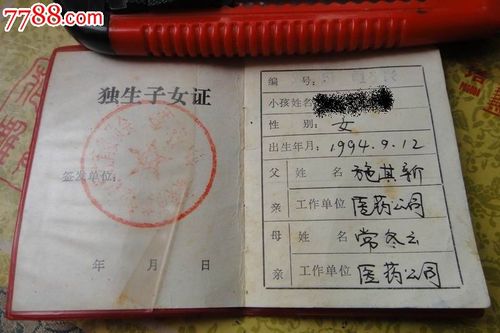 7788.com
独生子女证
签发单位:
年 月 日
编 号:
小孩姓名
性 别: 女
出生年月: 1994.9.12
父亲 姓名 施其新
工作单位 医药公司
母亲 姓名 常冬云
工作单位 医药公司